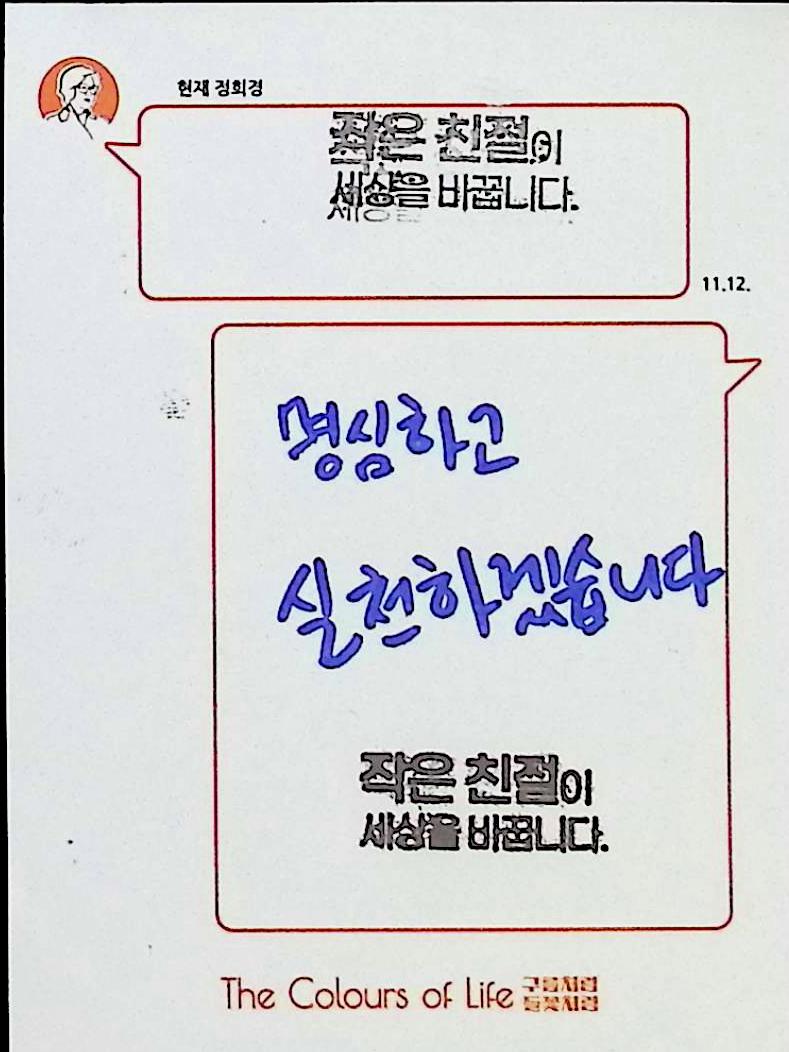 현재 정희경
작은 친절이
세상을 바꿉니다.
11.12.
명심하고
실천하겠습니다
작은 친절이
세상을 바꿉니다.
The Colours of Life 구름처럼
들꽃처럼